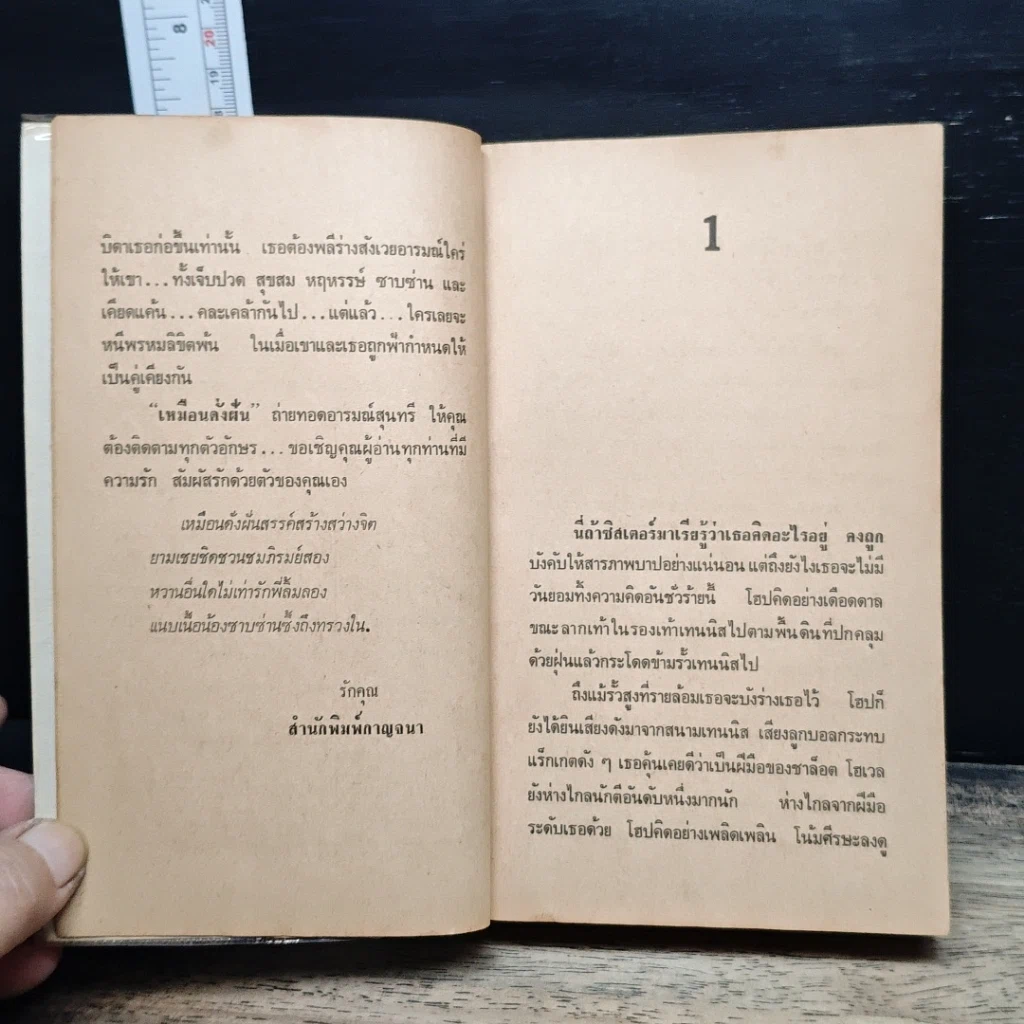 8
20
19
บิดาเธอก่อขึ้นเท่านั้น เธอต้องพลีร่างสังเวยอารมณ์ใคร่
ให้เขา...ทั้งเจ็บปวด สุขสม หฤหรรษ์ ซาบซ่าน และ
เคียดแค้น...คละเคล้ากันไป...แต่แล้ว...ใครเลยจะ
หนีพรหมลิขิตพ้น ในเมื่อเขาและเธอถูกฟ้ากำหนดให้
เป็นคู่เคียงกัน
“เหมือนดั่งฝัน” ถ่ายทอดอารมณ์สุนทรี ให้คุณ
ต้องติดตามทุกตัวอักษร...ขอเชิญคุณผู้อ่านทุกท่านที่มี
ความรัก สัมผัสรักด้วยตัวของคุณเอง
เหมือนดั่งฝันสรรค์สร้างสว่างจิต
ยามเชยชิดชวนชมภิรมย์สอง
หวานอื่นใดไม่เท่ารักพี่ลิ้มลอง
แนบเนื้อน้องซาบซ่านซึ้งถึงทรวงใน.
รักคุณ
สำนักพิมพ์กาญจนา
1
นี่ถ้าซิสเตอร์มาเรียรู้ว่าเธอคิดอะไรอยู่ คงถูก
บังคับให้สารภาพบาปอย่างแน่นอน แต่ถึงยังไงเธอจะไม่มี
วันยอมทิ้งความคิดอันชั่วร้ายนี้ โฮปคิดอย่างเดือดดาล
ขณะลากเท้าในรองเท้าเทนนิสไปตามพื้นดินที่ปกคลุม
ด้วยฝุ่นแล้วกระโดดข้ามรั้วเทนนิสไป
ถึงแม้รั้วสูงที่รายล้อมเธอจะบังร่างเธอไว้ โฮปก็
ยังได้ยินเสียงดังมาจากสนามเทนนิส เสียงลูกบอลกระทบ
แร็กเกตดัง ๆ เธอคุ้นเคยดีว่าเป็นฝีมือของชาล็อต โฮเวล
ยังห่างไกลนักตีอันดับหนึ่งมากนัก ห่างไกลจากฝีมือ
ระดับเธอด้วย โฮปคิดอย่างเพลิดเพลิน โน้มศีรษะลงดู